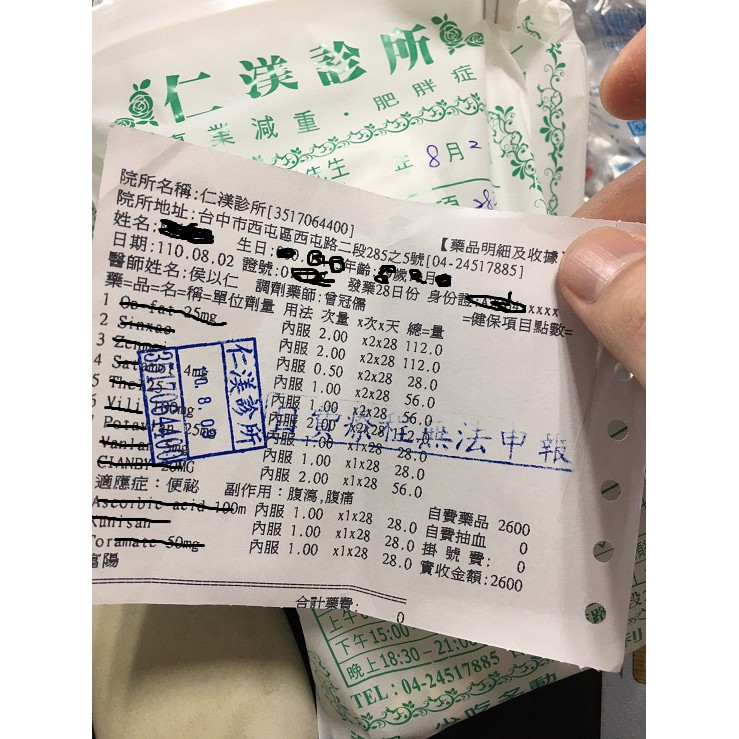 仁渼診所
業減重・肥胖症
生 年8月2
院所名稱:仁渼診所[3517064400]
院所地址:台中市西屯區西屯路二段285之5號[04-24517885]
【藥品明細及收據
姓名: 生日: 年齡: 歲 月
日期:110.08.02 證號:0 發藥28日份 身份證 xxxx
醫師姓名:侯以仁 調劑藥師:曾冠儒 =健保項目點數=
藥=品=名=稱=單位劑量 用法 次量 x次x天 總=量
1 Oa-fat 25mg 內服 2.00 x2x28 112.0
2 Sinxao 內服 2.00 x2x28 112.0
3 內服 0.50 x2x28 28.0
4 4mg 內服 1.00 x2x28 56.0
5 Ther25 內服 1.00 x2x28 56.0
Vili 100mg 內服 2.00 x2x28 112.0
內服 1.00 x1x28 28.0
內服 1.00 x1x28 28.0
20MG 內服 2.00 x1x28 56.0
適應症:便祕 副作用:腹瀉,腹痛
Ascorbic acid 100m 內服 1.00 x1x28 28.0
Kunisan 內服 1.00 x1x28 28.0
Toramate 50mg 內服 1.00 x1x28 28.0
富陽
自費藥品 2600
自費抽血 0
掛號費: 0
實收金額:2600
合計藥費: 0
仁渼診所
110.8.02
3517064400
自費療程無法申報
上午
下午15:00
晚上18:30-21:00
TEL:04-24517885